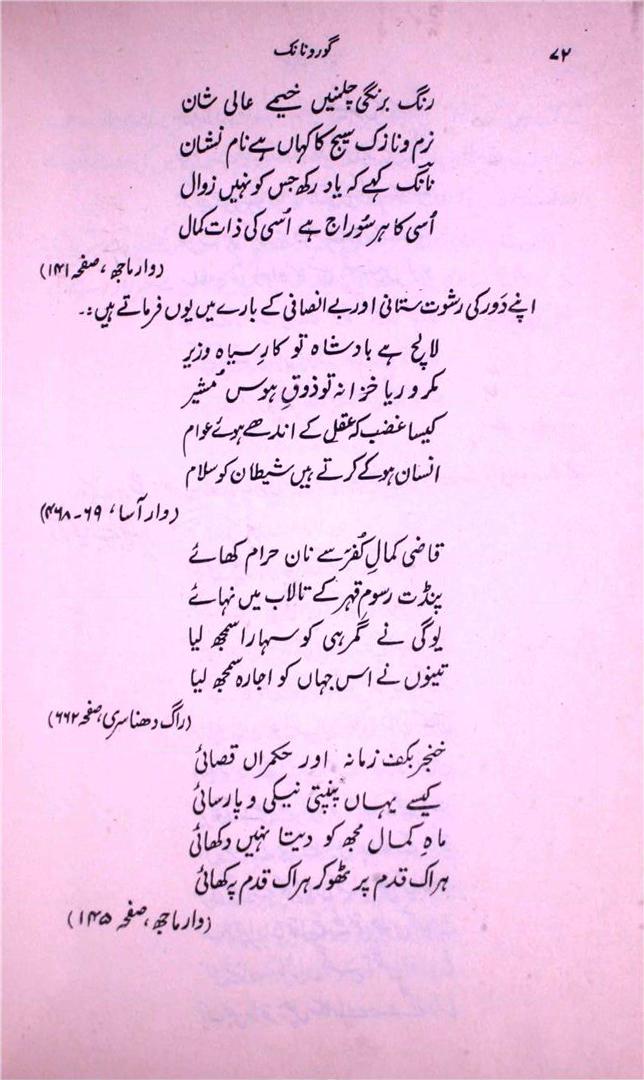 ۷۲ گورونانک
رنگ برنگی چلمنیں خیمے عالی شان
نرم و نازک سیج کا کہاں ہے نام نشان
نانک کہے کہ یاد رکھ جس کو نہیں زوال
اُسی کا ہر سُو راج ہے اُسی کی ذات کمال
(وار ماجھ، صفحہ ۱۴۱)
اپنے دَور کی رشوت ستانی اور بے انصافی کے بارے میں یوں فرماتے ہیں:۔
لالچ ہے بادشاہ تو کارِ سیاہ وزیر
مکر و ریا خزانہ تو ذوقِ ہوس مُشیر
کیسا غضب کہ عقل کے اندھے ہوئے عوام
انسان ہو کے کرتے ہیں شیطان کو سلام
(وار آسا، ۶۹۔۴۶۸)
قاضی کمالِ کُفر سے نان حرام کھائے
پنڈت رسومِ قہر کے تالاب میں نہائے
یوگی نے گمرہی کو سہارا سمجھ لیا
تینوں نے اس جہاں کو اجارہ سمجھ لیا
(راگ دھناسری، صفحہ ۶۶۲)
خنجر بکف زمانہ اور حکمراں قصائی
کیسے یہاں پنپتی نیکی و پارسائی
ماہِ کمال مجھ کو دیتا نہیں دکھائی
ہر اک قدم پر ٹھوکر ہر اک قدم پر کھائی
(وار ماجھ، صفحہ ۱۴۵)